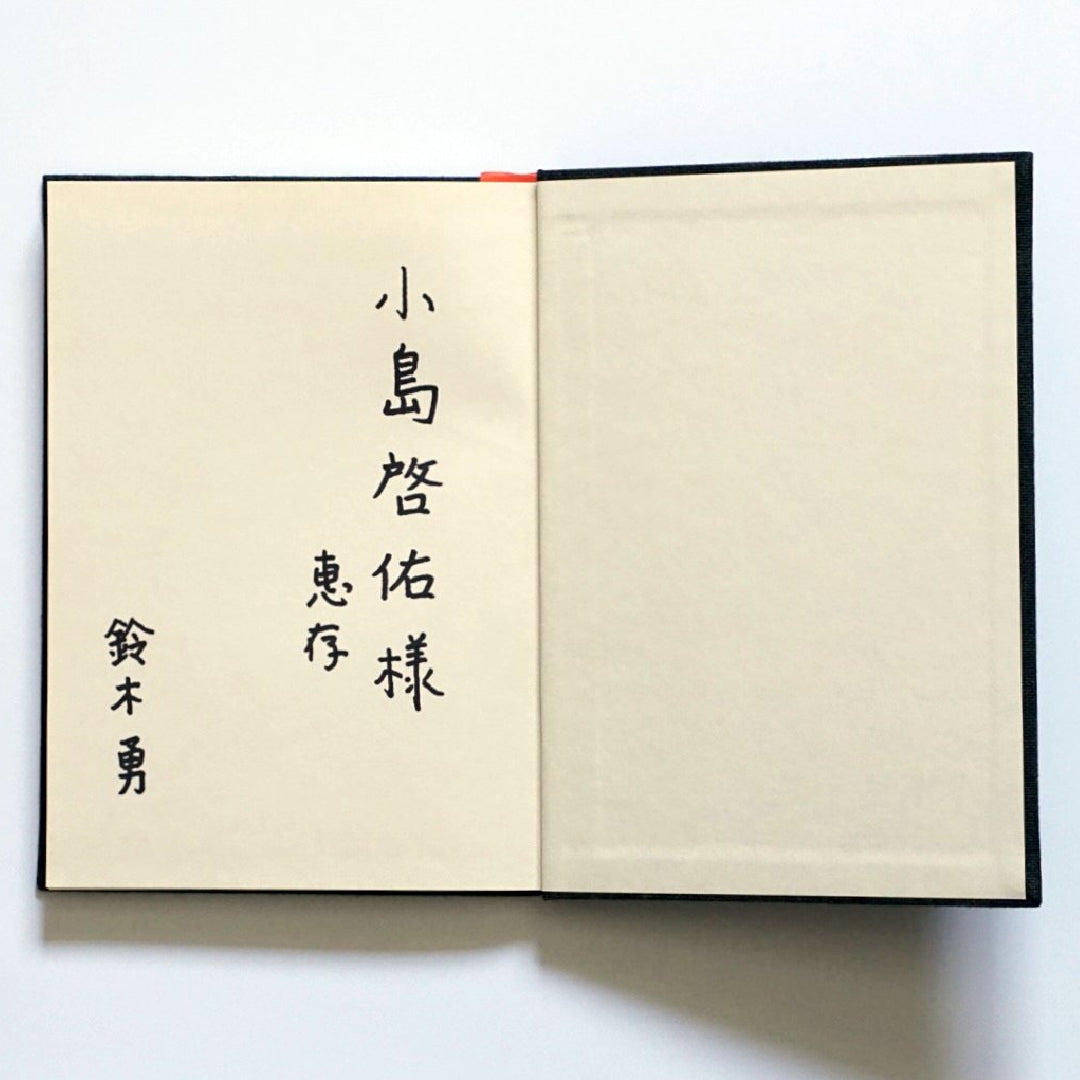 小島啓佑様
恵存
鈴木勇